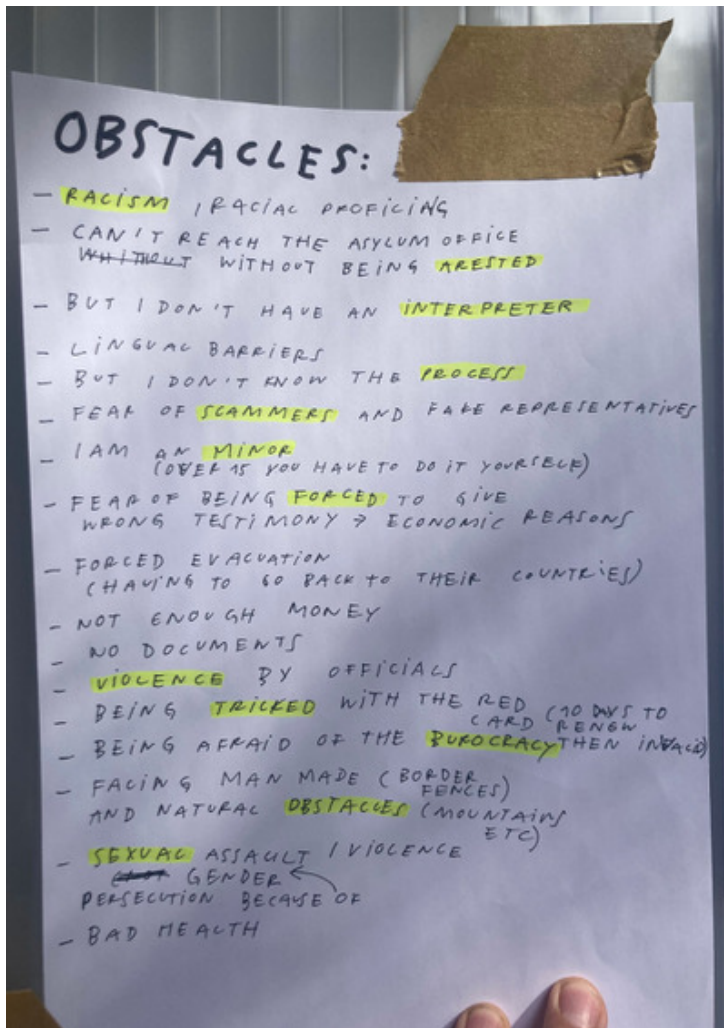 OBSTACLES:
- RACISM / RACIAL PROFICING
- CAN'T REACH THE ASYLUM OFFICE
WHITHOUT WITHOUT BEING ARESTED
- BUT I DON'T HAVE AN INTERPRETER
- LINGUAL BARRIERS
- BUT I DON'T KNOW THE PROCESS
- FEAR OF SCAMMERS AND FAKE REPRESENTATIVES
- I AM AN MINOR
(OVER 15 YOU HAVE TO DO IT YOURSELF)
- FEAR OF BEING FORCED TO GIVE
WRONG TESTIMONY → ECONOMIC REASONS
- FORCED EVACUATION
(HAVING TO GO BACK TO THEIR COUNTRIES)
- NOT ENOUGH MONEY
- NO DOCUMENTS
- VIOLENCE BY OFFICIALS
- BEING TRICKED WITH THE RED (10 DAYS TO
CARD RENEW
- BEING AFRAID OF THE BUROCRACY THEN INVALID)
- FACING MAN MADE (BORDER
FENCES)
AND NATURAL OBSTACLES (MOUNTAINS
ETC)
- SEXUAL ASSAULT / VIOLENCE
GENDER
PERSECUTION BECAUSE OF
- BAD HEALTH